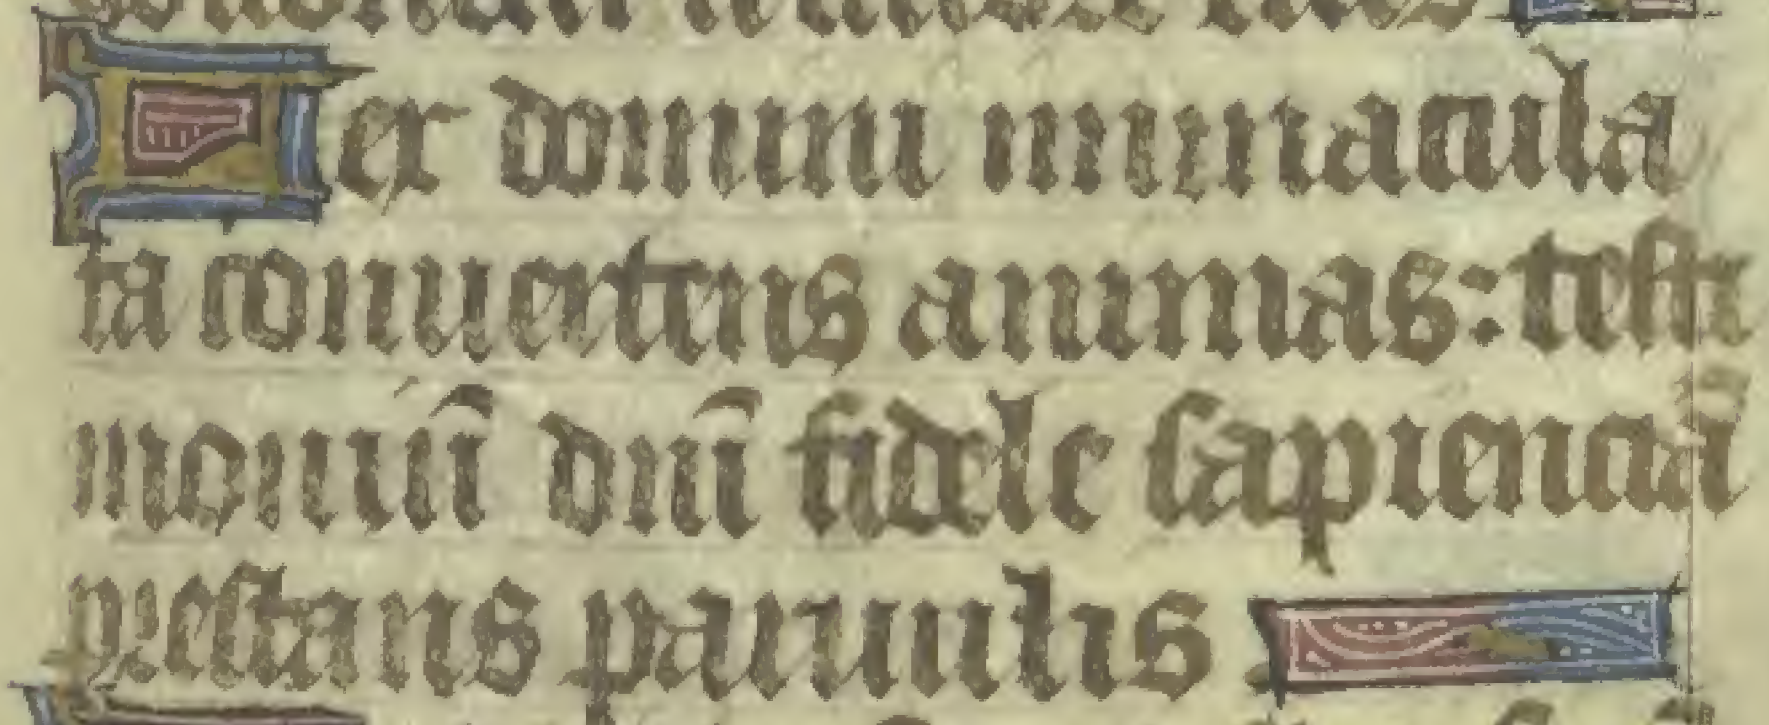 Lex domini inmacula
ta conuertens animas: testi
moniū dñi fidele sapienciā
prestans paruulis.